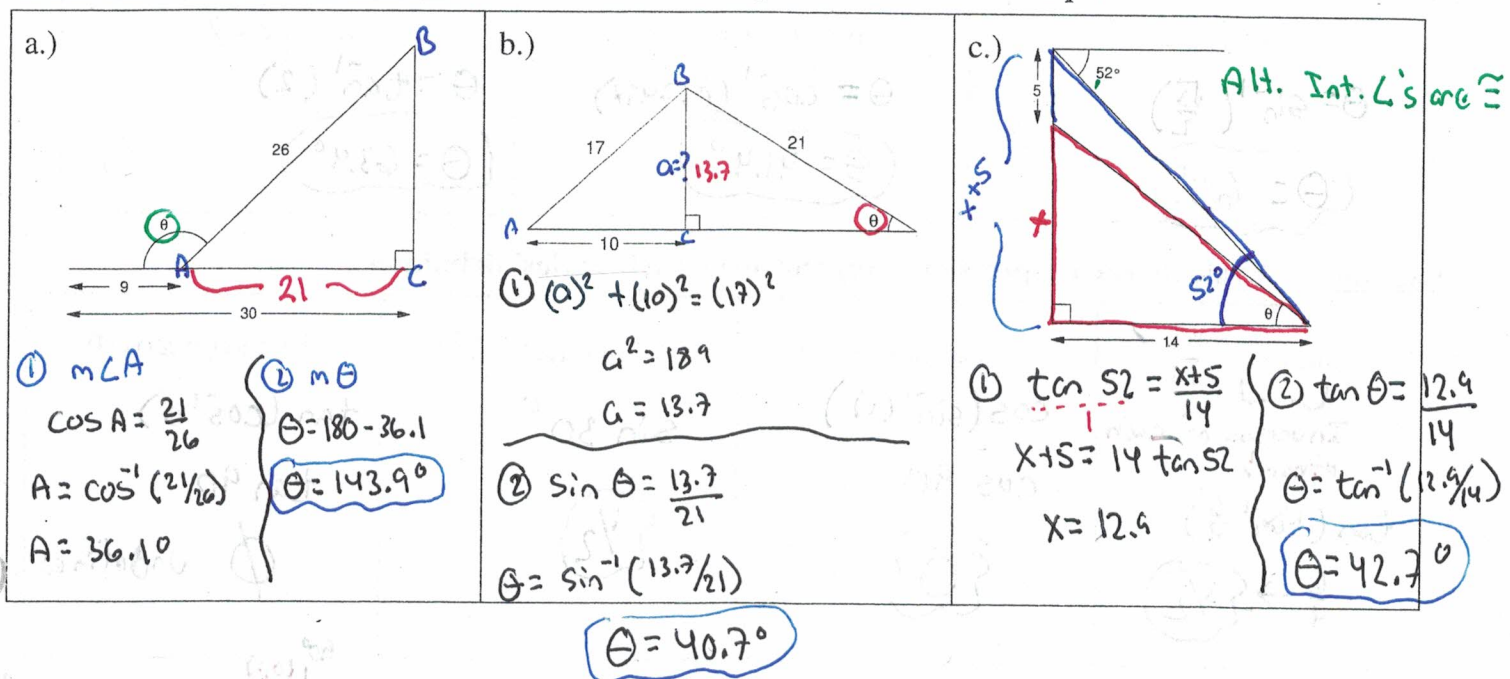 a.)
B
26
θ
A
C
9
21
30
① m∠A
cos A = 21/26
A = cos⁻¹(21/26)
A = 36.1°
② mθ
θ = 180 - 36.1
θ = 143.9°
b.)
B
17
21
a=? 13.7
A
C
θ
10
① (a)² + (10)² = (17)²
a² = 189
a = 13.7
② sin θ = 13.7/21
θ = sin⁻¹(13.7/21)
θ = 40.7°
c.)
52°
Alt. Int. ∠'s are ≅
5
x+5
x
52°
θ
14
① tan 52 = x+5/14
1
x+5 = 14 tan 52
x = 12.9
② tan θ = 12.9/14
θ = tan⁻¹(12.9/14)
θ = 42.7°